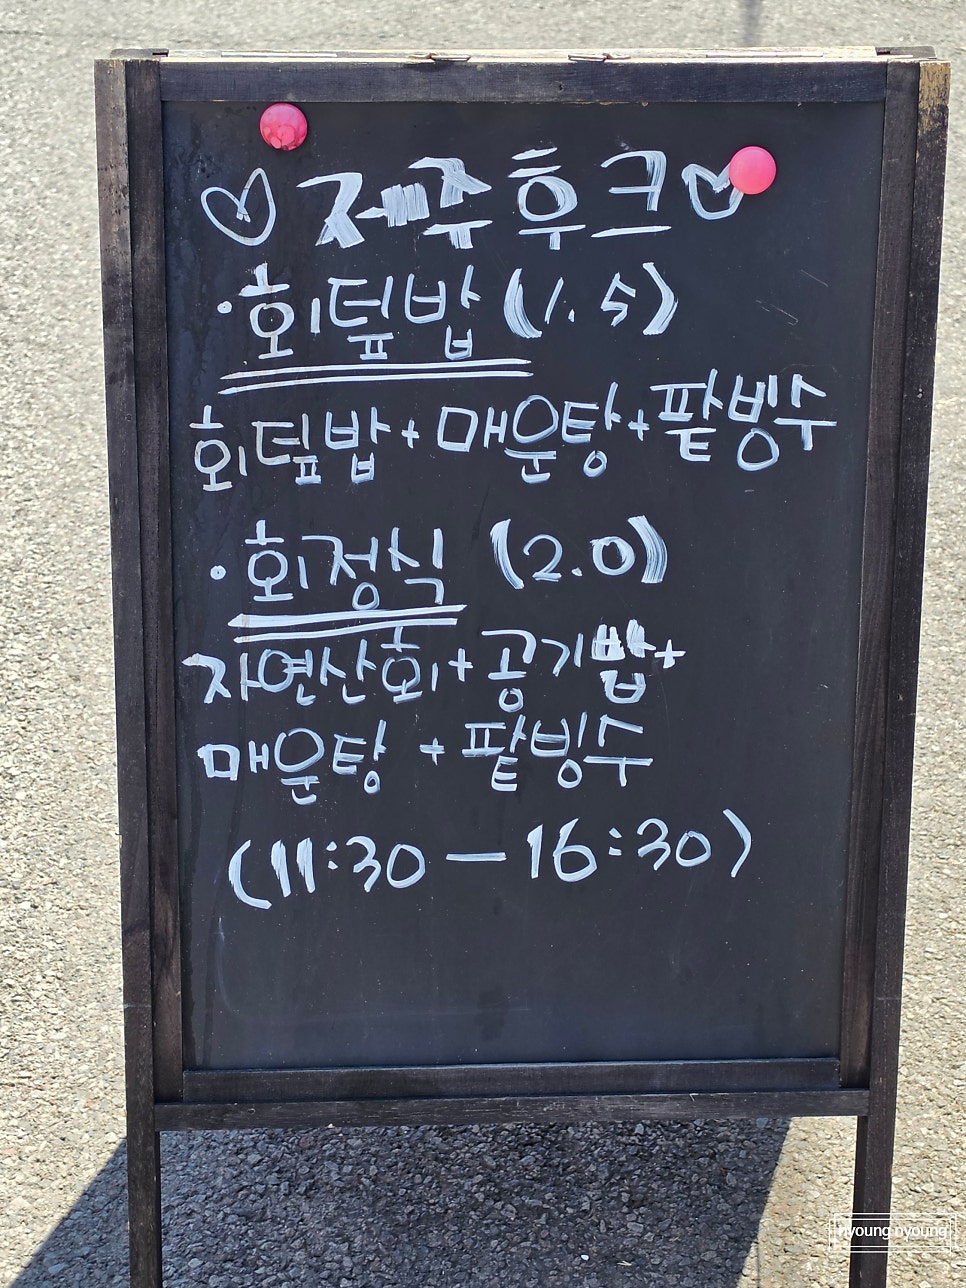 ♡제주후크♡
·회덮밥 (1.5)
회덮밥+매운탕+팥빙수
·회정식 (2.0)
자연산회+공기밥+
매운탕+팥빙수
(11:30 — 16:30)
hyoung hyoung